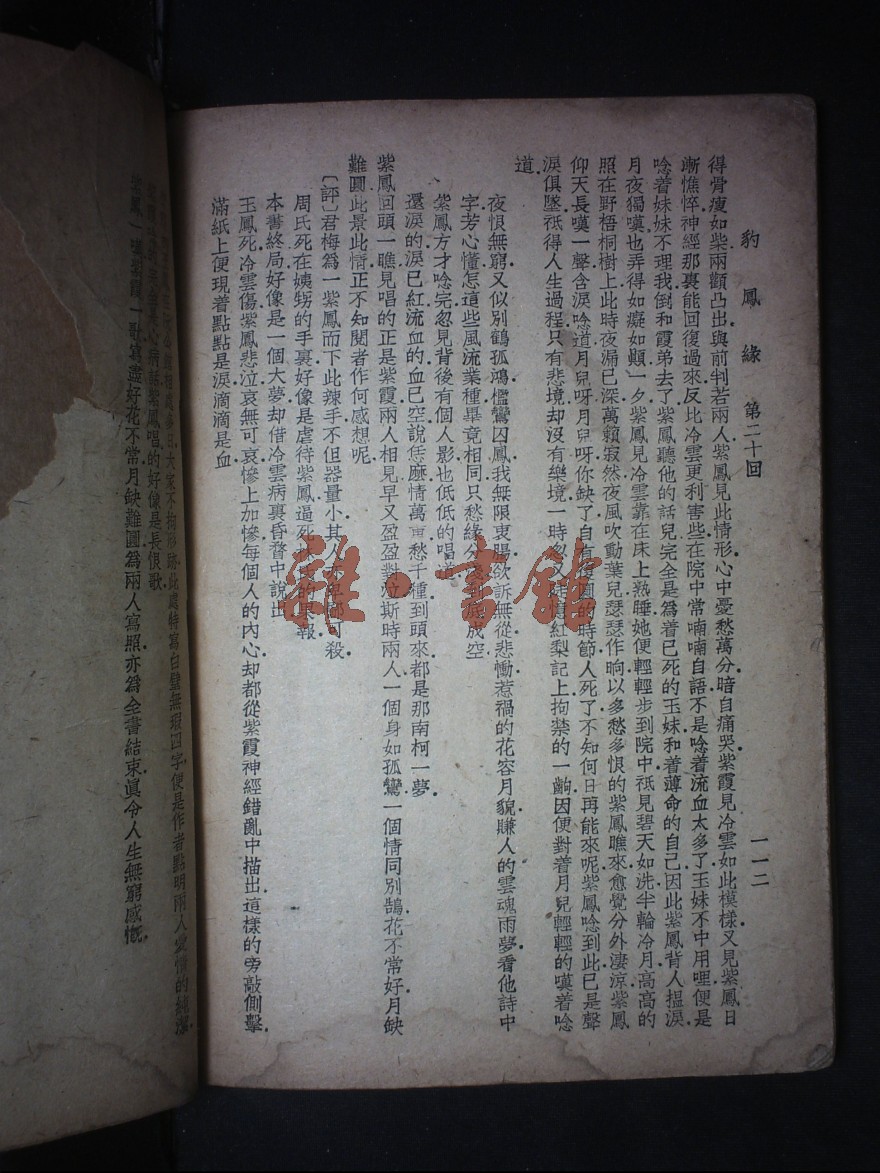 豹鳳緣 第二十回 一一二
得骨瘦如柴兩觀凸出與前判若兩人紫鳳見此情形心中憂愁萬分暗自痛哭紫霞見冷雲如此模樣又見紫鳳日
漸憔悴神經那裏能回復過來反比冷雲更利害些在院中常喃喃自語不是唸着流血太多了玉妹不中用哩便是
唸着妹妹不理我倒和霞弟去了紫鳳聽他的話兒完全是爲着已死的玉妹和着薄命的自己因此紫鳳背人揾淚
月夜獨嘆也弄得如癡如顚一夕紫鳳見冷雲靠在床上熟睡她便輕輕步到院中祇見碧天如洗半輪冷月高高的
照在野梧桐樹上此時夜漏已深萬籟寂然夜風吹動葉兒瑟瑟作响以多愁多恨的紫鳳瞧來愈覺分外淒涼紫鳳
仰天長嘆一聲含淚唸道月兒呀月兒呀你缺了自有圓的時節人死了不知何日再能來呢紫鳳唸到此已是聲
淚俱墜祇得人生過程只有悲境却沒有樂境一時忽又紅梨記上拘禁的一齣因便對着月兒輕輕的嘆着唸
道
夜恨無窮又似別鶴孤鴻檻鸞囚鳳我無限衷腸欲訴無從悲慟惹禍的花容月貌賺人的雲魂雨夢看他詩中
字芳心懂怎這些風流業種畢竟相同只愁緣分成空
紫鳳方才唸完忽見背後有個人影也低低的唱道
還淚的淚已紅流血的血已空說恁麽情萬愁千種到頭來都是那南柯一夢
紫鳳回頭一瞧見唱的正是紫霞兩人相見早又盈盈對泣斯時兩人一個身如孤鸞一個情同別鵠花不常好月缺
難圓此景此情正不知閱者作何感想呢
〔評〕君梅爲一紫鳳而下此辣手不但器量小其人可殺
周氏死在姨甥的手裏好像是虐待紫鳳逼死的果報
本書終局好像是一個大夢却借冷雲病裏昏瞀中說出
玉鳳死冷雲傷紫鳳悲泣哀無可哀慘上加慘每個人的內心却都從紫霞神經錯亂中描出這樣的旁敲側擊
滿紙上便現着點點是淚滴滴是血
大家不拘形跡此處特寫白璧無瑕四字便是作者點明兩人愛情的純潔
病話紫鳳唱的好像是長恨歌
一歌寫盡好花不常月缺難圓爲兩人寫照亦爲全書結束眞令人生無窮感慨
雜·書館